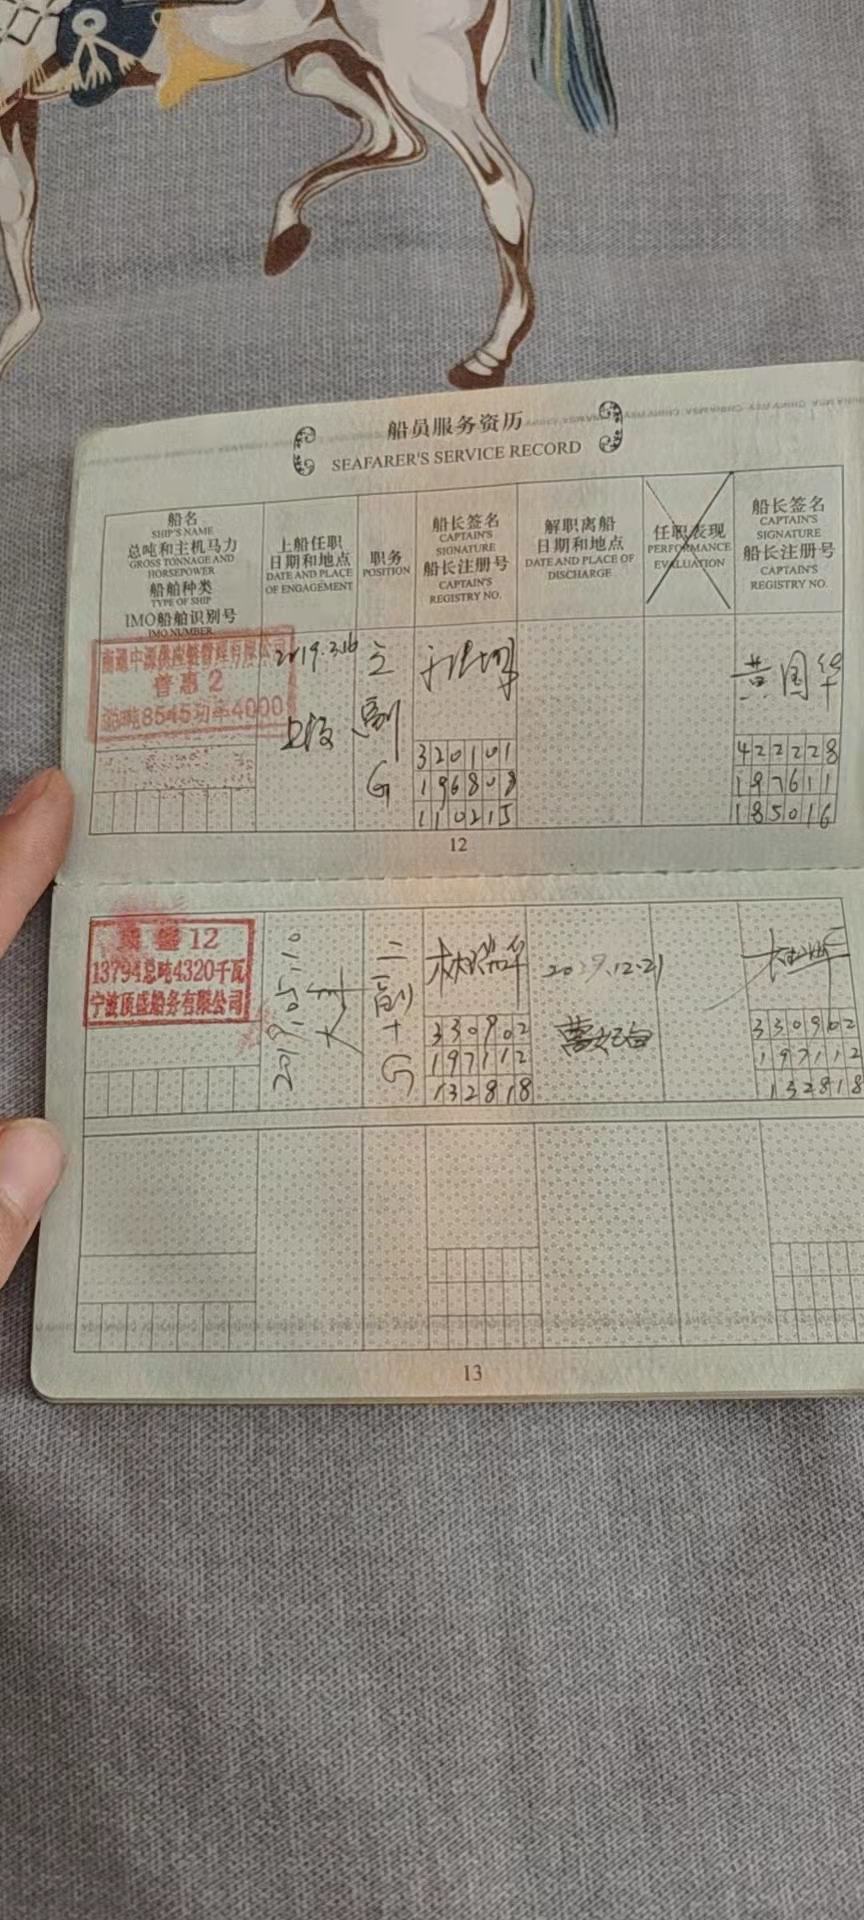 船员服务资历
SEAFARER'S SERVICE RECORD
船名
SHIP'S NAME
总吨和主机马力
GROSS TONNAGE AND
HORSEPOWER
船舶种类
TYPE OF SHIP
IMO船舶识别号
IMO NUMBER
上船任职
日期和地点
DATE AND PLACE
OF ENGAGEMENT
职务
POSITION
船长签名
CAPTAIN'S
SIGNATURE
船长注册号
CAPTAIN'S
REGISTRY NO.
解职离船
日期和地点
DATE AND PLACE OF
DISCHARGE
任职表现
PERFORMANCE
EVALUATION
船长签名
CAPTAIN'S
SIGNATURE
船长注册号
CAPTAIN'S
REGISTRY NO.
南通中源供应链管理有限公司
普惠2
总吨8545功率4000
2019.3.16
副
G
320101
11021
黄国华
422228
197611
185016
12
盛12
13794总吨4320千瓦
宁波顶盛船务有限公司
2019.05.10
二副
G
林瑞华
330902
197112
132818
12.21
330902
197112
132818
13